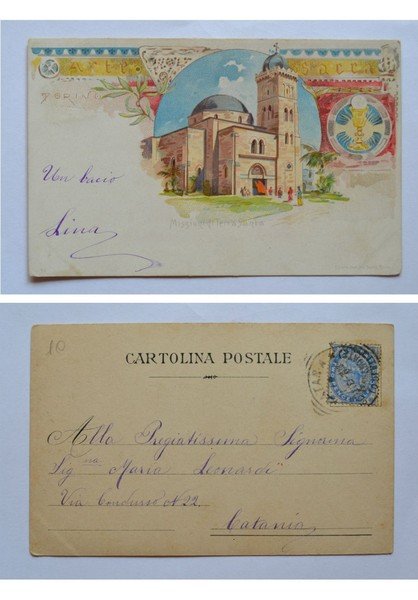 Arte Sacra
TORINO
Un bacio
Lina
Missioni di Terra Santa
10
CARTOLINA POSTALE
Alla Pregiatissima Signorina
Sig.na Maria Leonardi
Via N. 22
Catania